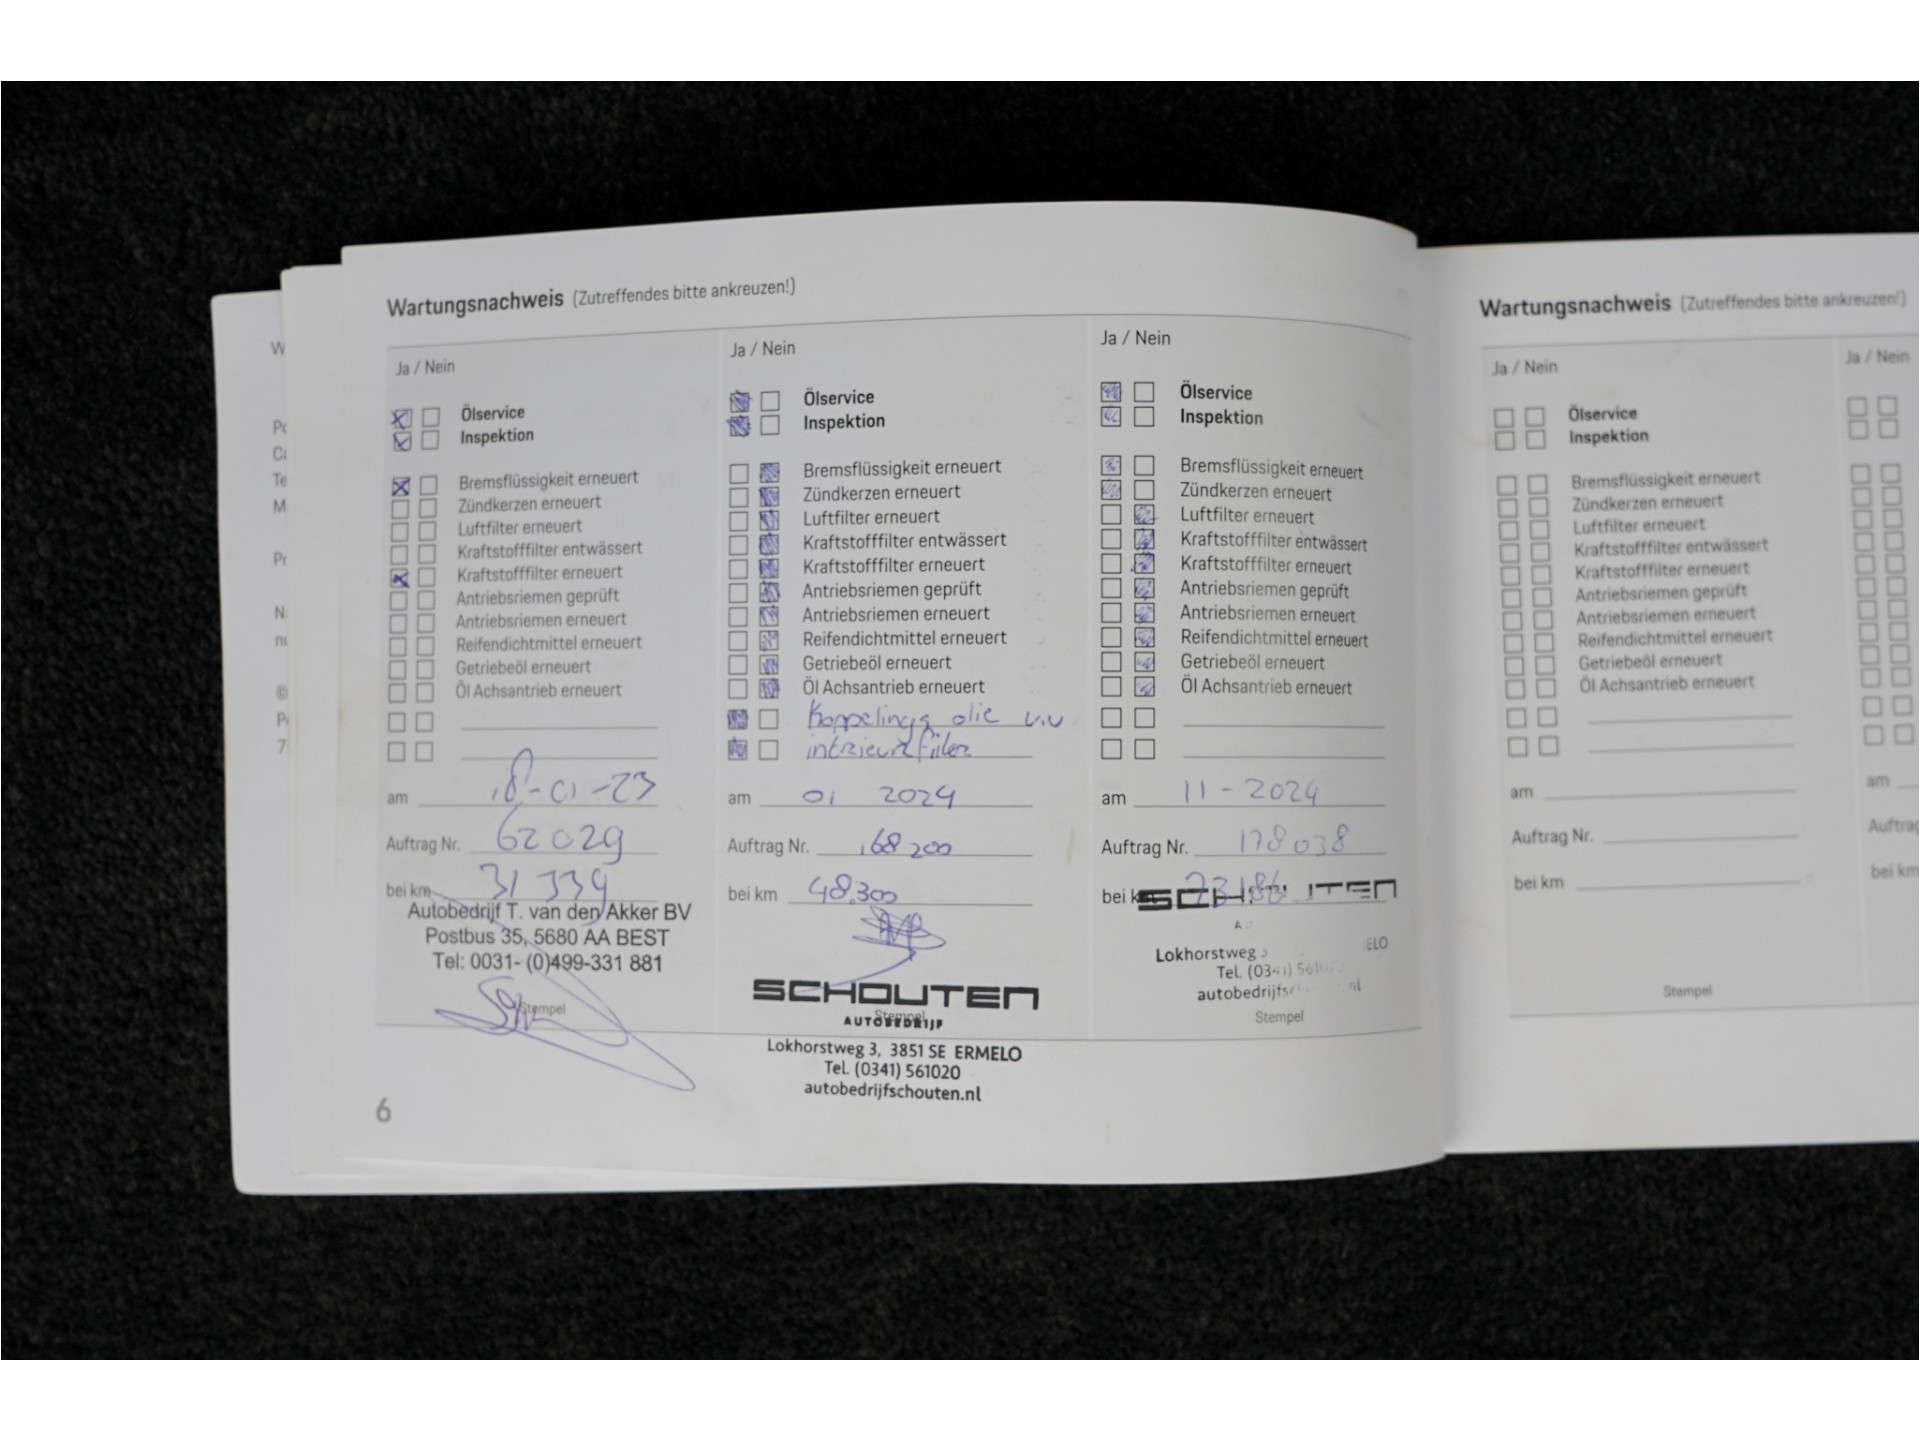 Wartungsnachweis (Zutreffendes bitte ankreuzen!)
Ja / Nein
Ölservice
Inspektion
Bremsflüssigkeit erneuert
Zündkerzen erneuert
Luftfilter erneuert
Kraftstofffilter entwässert
Kraftstofffilter erneuert
Antriebsriemen geprüft
Antriebsriemen erneuert
Reifendichtmittel erneuert
Getriebeöl erneuert
Öl Achsantrieb erneuert
am 18-01-23
Auftrag Nr. 62029
bei km 31339
Autobedrijf T. van den Akker BV
Postbus 35, 5680 AA BEST
Tel: 0031- (0)499-331 881
Stempel
6
Ja / Nein
Ölservice
Inspektion
Bremsflüssigkeit erneuert
Zündkerzen erneuert
Luftfilter erneuert
Kraftstofffilter entwässert
Kraftstofffilter erneuert
Antriebsriemen geprüft
Antriebsriemen erneuert
Reifendichtmittel erneuert
Getriebeöl erneuert
Öl Achsantrieb erneuert
Koppelings olie v.v
am 01 2024
Auftrag Nr. 168200
bei km 48.300
SCHOUTEN
Stempel
AUTOBEDRIJF
Lokhorstweg 3, 3851 SE ERMELO
Tel. (0341) 561020
autobedrijfschouten.nl
Ja / Nein
Ölservice
Inspektion
Bremsflüssigkeit erneuert
Zündkerzen erneuert
Luftfilter erneuert
Kraftstofffilter entwässert
Kraftstofffilter erneuert
Antriebsriemen geprüft
Antriebsriemen erneuert
Reifendichtmittel erneuert
Getriebeöl erneuert
Öl Achsantrieb erneuert
am 11-2024
Auftrag Nr. 178038
bei km
Lokhorstweg
Tel.
Stempel
Wartungsnachweis (Zutreffendes bitte ankreuzen!)
Ja / Nein
Ölservice
Inspektion
Bremsflüssigkeit erneuert
Zündkerzen erneuert
Luftfilter erneuert
Kraftstofffilter entwässert
Kraftstofffilter erneuert
Antriebsriemen geprüft
Antriebsriemen erneuert
Reifendichtmittel erneuert
Getriebeöl erneuert
Öl Achsantrieb erneuert
am
Auftrag Nr.
bei km
Stempel
Ja / Nein
am
Auftrag
bei km